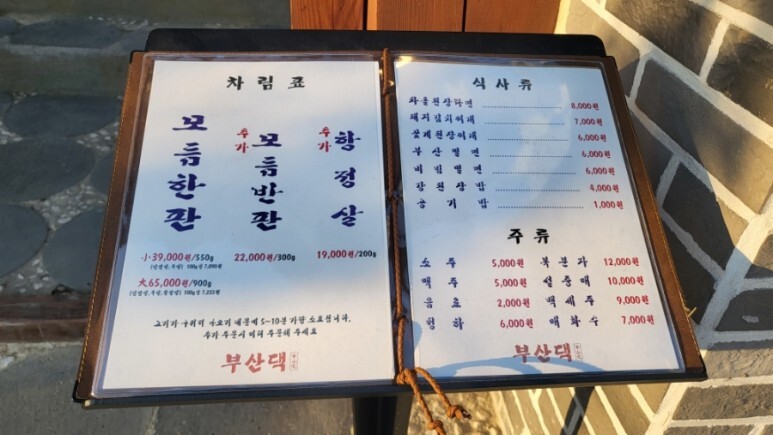 차림표
모듬한판
추가 모듬반판
추가 항정살
小39,000원/550g
22,000원/300g
19,000원/200g
100g당 7,090원
大65,000원/900g
100g당 7,222원
고기가 두꺼워 때문에 5~10분 가량 소요됩니다.
추가 주문시 미리 주문해 주세요
부산댁
식사류
차돌된장라면 8,000원
돼지김치찌개 7,000원
꽃게된장찌개 6,000원
부산밀면 6,000원
비빔밀면 6,000원
강된장밥 4,000원
공기밥 1,000원
주류
소주 5,000원 복분자 12,000원
맥주 5,000원 설중매 10,000원
음료 2,000원 백세주 9,000원
청하 6,000원 매화수 7,000원
부산댁